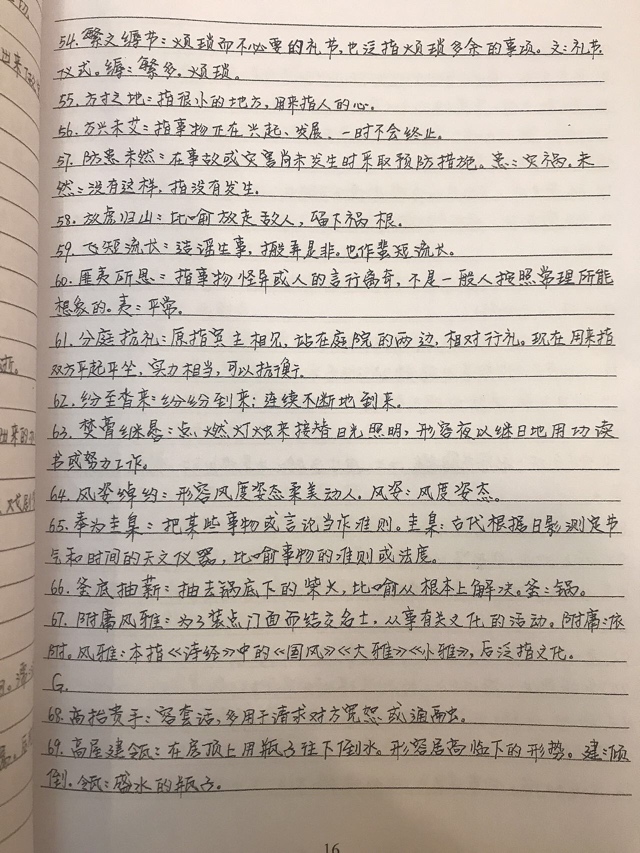 54. 繁文缛节：烦琐而不必要的礼节，也泛指烦琐多余的事项。文：礼节
仪式。缛：繁多，烦琐。
55. 方寸之地：指很小的地方，用来指人的心。
56. 方兴未艾：指事物正在兴起、发展，一时不会终止。
57. 防患未然：在事故或灾害尚未发生时采取预防措施。患：灾祸，未
然：没有这样，指没有发生。
58. 放虎归山：比喻放走敌人，留下祸根。
59. 飞短流长：造谣生事，搬弄是非。也作蜚短流长。
60. 匪夷所思：指事物怪异或人的言行离奇，不是一般人按照常理所能
想象的。夷：平常。
61. 分庭抗礼：原指宾主相见，站在庭院的两边，相对行礼。现在用来指
双方平起平坐，实力相当，可以抗衡。
62. 纷至沓来：纷纷到来；连续不断地到来。
63. 焚膏继晷：点燃灯烛来接替日光照明，形容夜以继日地用功读
书或努力工作。
64. 风姿绰约：形容风度姿态柔美动人。风姿：风度姿态。
65. 奉为圭臬：把某些事物或言论当作准则。圭臬：古代根据日影测定节
气和时间的天文仪器，比喻事物的准则或法度。
66. 釜底抽薪：抽去锅底下的柴火，比喻从根本上解决。釜：锅。
67. 附庸风雅：为了装点门面而结交名士，从事有关文化的活动。附庸：依
附。风雅：本指《诗经》中的《国风》《大雅》《小雅》，后泛指文化。
G.
68. 高抬贵手：客套话，多用于请求对方宽恕或通融。
69. 高屋建瓴：在房顶上用瓶子往下倒水。形容居高临下的形势。建：倾
倒。瓴：盛水的瓶子。
16